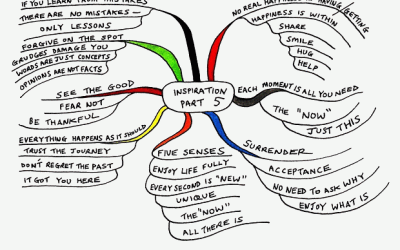 INSPIRATION
PART 5
IF YOU LEARN FROM MISTAKES
THERE ARE NO MISTAKES -
ONLY LESSONS
FORGIVE ON THE SPOT
GRUDGES DAMAGE YOU
WORDS ARE JUST CONCEPTS
OPINIONS ARE NOT FACTS
SEE THE GOOD
FEAR NOT
BE THANKFUL
EVERYTHING HAPPENS AS IT SHOULD
TRUST THE JOURNEY
DON'T REGRET THE PAST
IT GOT YOU HERE
FIVE SENSES
ENJOY LIFE FULLY
EVERY SECOND IS "NEW"
UNIQUE
THE "NOW"
ALL THERE IS
NO REAL HAPPINESS IN HAVING/GETTING
HAPPINESS IS WITHIN
SHARE
SMILE
HUG
HELP
EACH MOMENT IS ALL YOU NEED
THE "NOW"
JUST THIS
SURRENDER
ACCEPTANCE
NO NEED TO ASK WHY
ENJOY WHAT IS